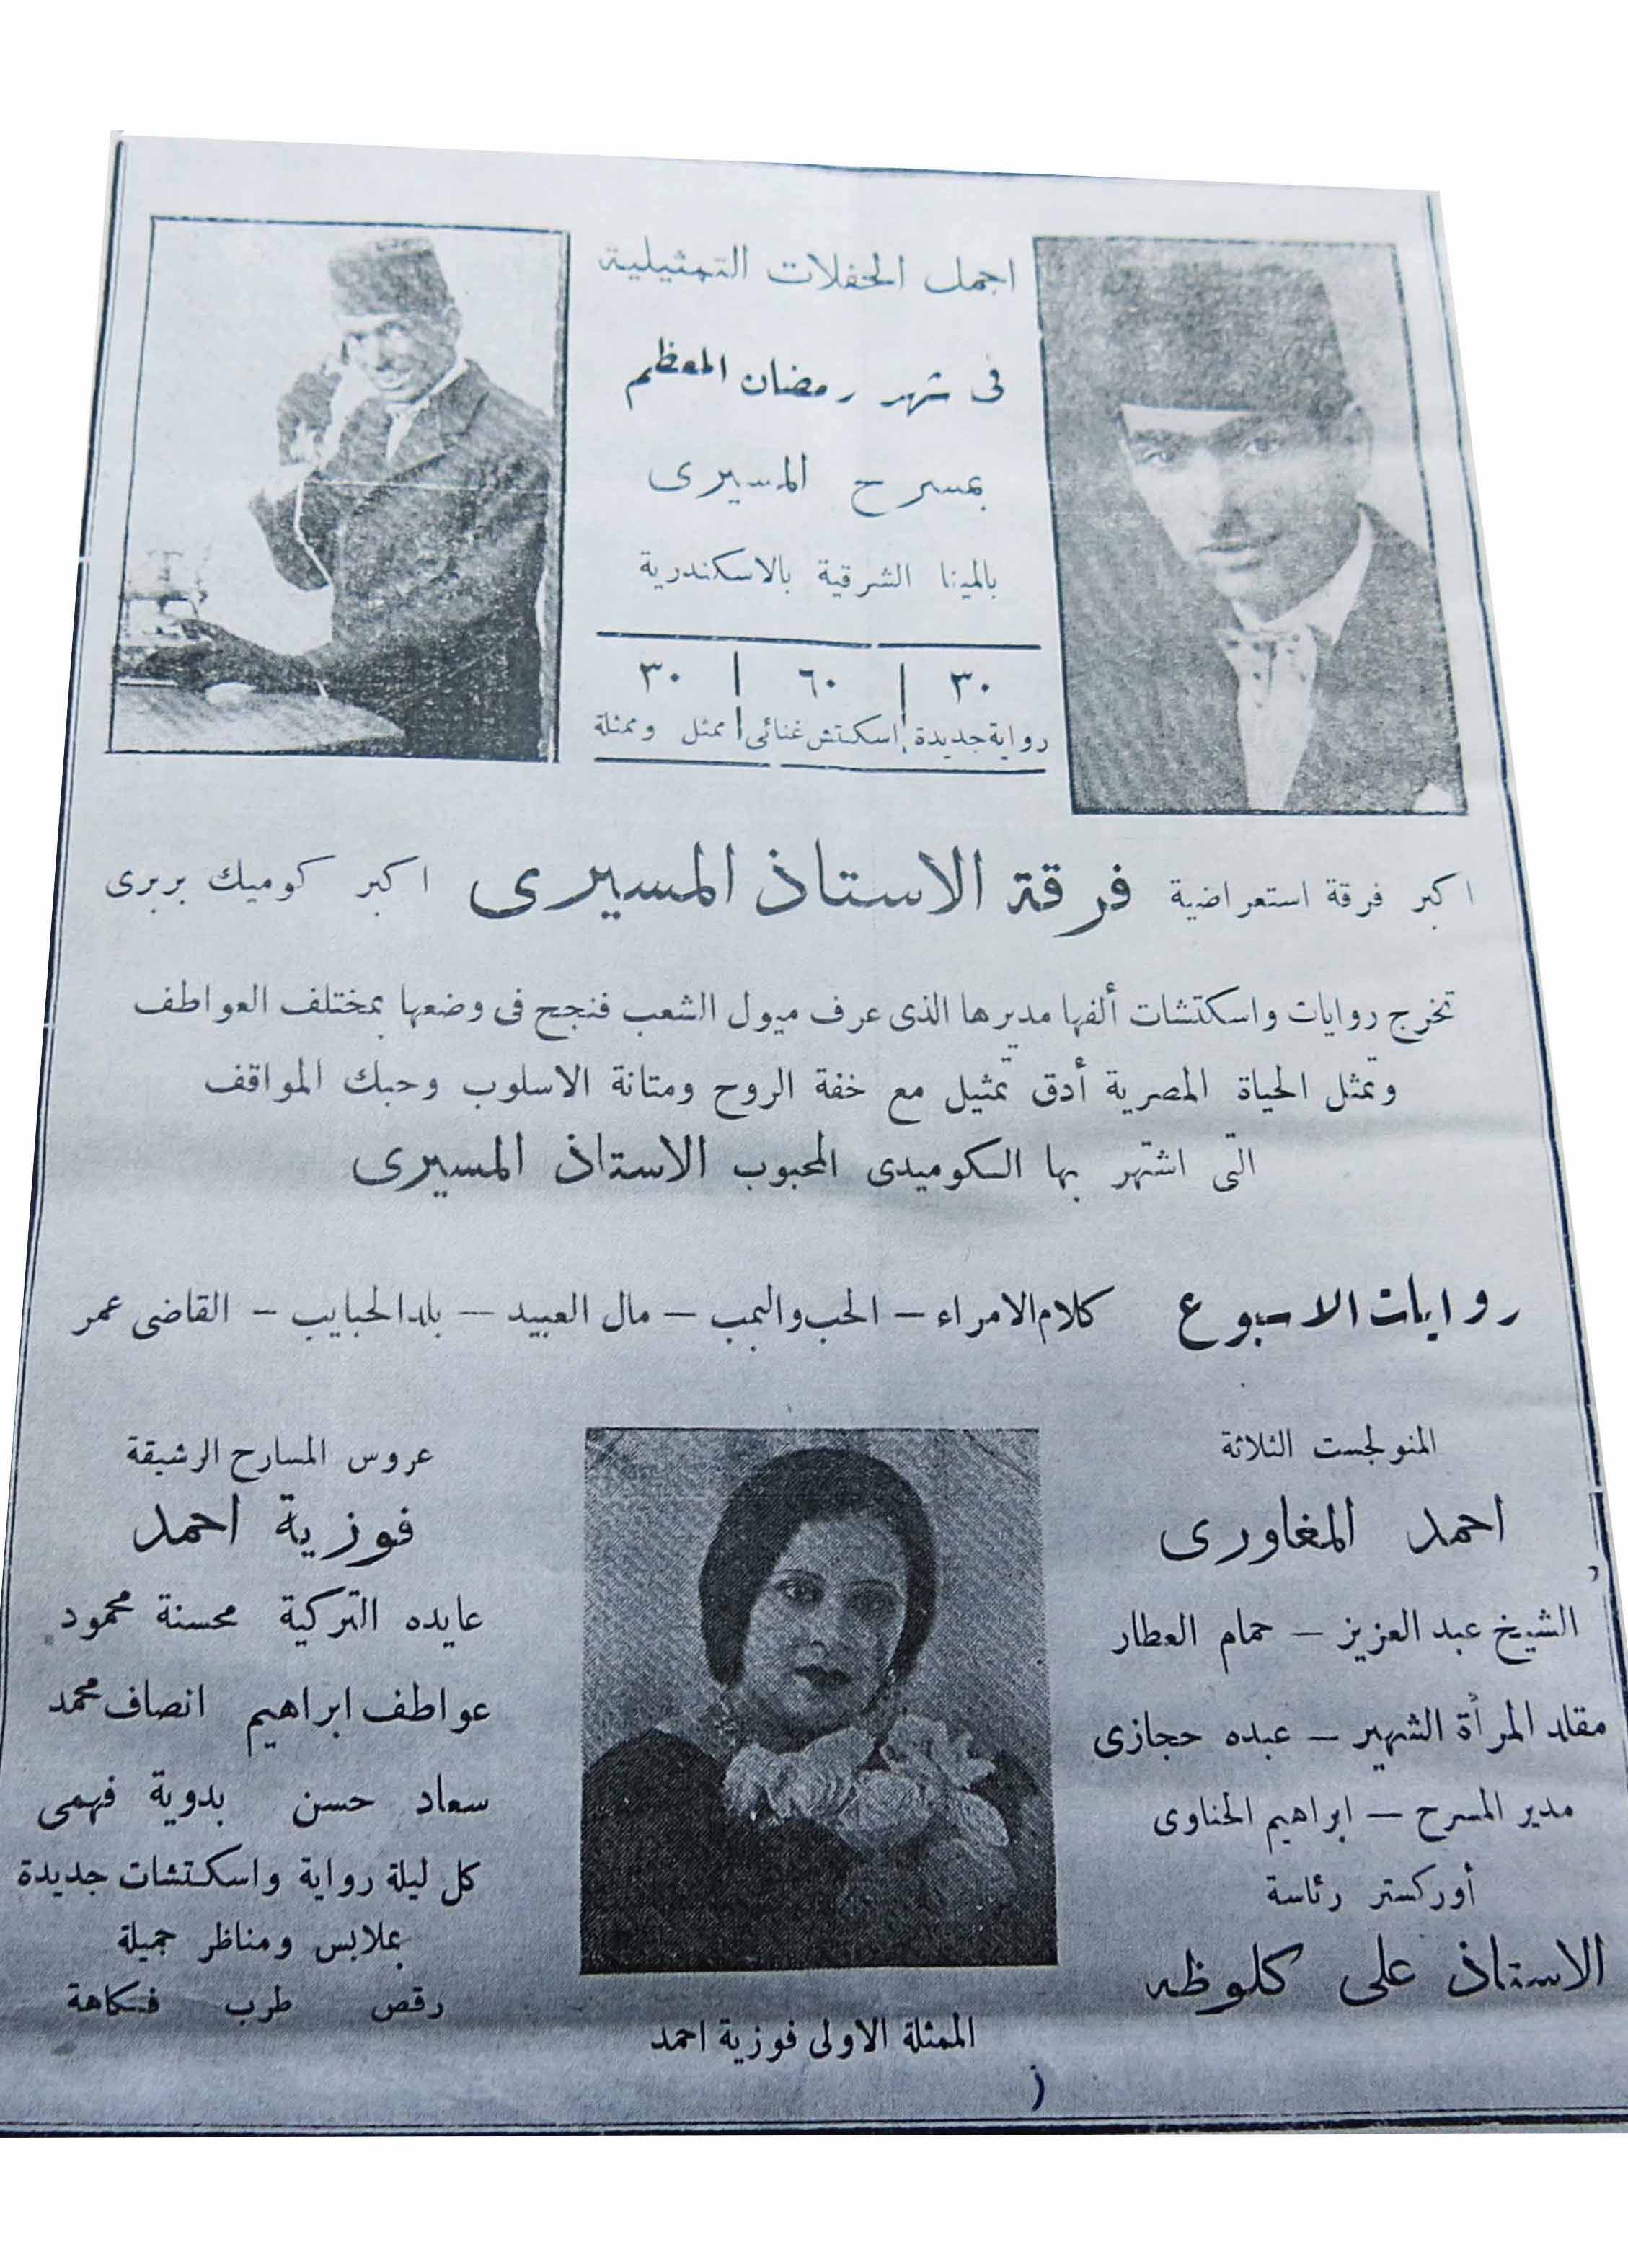 اجمل الحفلات التمثيلية
فى شهر رمضان المعظم
بمسرح المسيرى
بالمينا الشرقية بالاسكندرية
٣٠ | ٦٠ | ٣٠
رواية جديدة | اسكتش غنائى | ممثل وممثلة
اكبر فرقة استعراضية فرقة الاستاذ المسيرى اكبر كوميك بربرى
تخرج روايات واسكتشات ألفها مديرها الذى عرف ميول الشعب فنجح فى وضعها بمختلف العواطف
وتمثل الحياة المصرية أدق تمثيل مع خفة الروح ومتانة الاسلوب وحبك المواقف
التى اشتهر بها الكوميدى المحبوب الاستاذ المسيرى
روايات الاسبوع كلام الامراء – الحب والبمب – مال العبيد – بلد الحبايب – القاضى عمر
المنولجست الثلاثة
احمد المغاورى
الشيخ عبد العزيز – حمام العطار
مقلد المرأة الشهير – عبده حجازى
مدير المسرح – ابراهيم الحناوى
أوركستر رئاسة
الاستاذ على كلوظه
الممثلة الاولى فوزية احمد
عروس المسارح الرشيقة
فوزية احمد
عايده التركية محسنة محمود
عواطف ابراهيم انصاف محمد
سعاد حسن بدوية فهمى
كل ليلة رواية واسكتشات جديدة
بملابس ومناظر جميلة
رقص طرب فكاهة